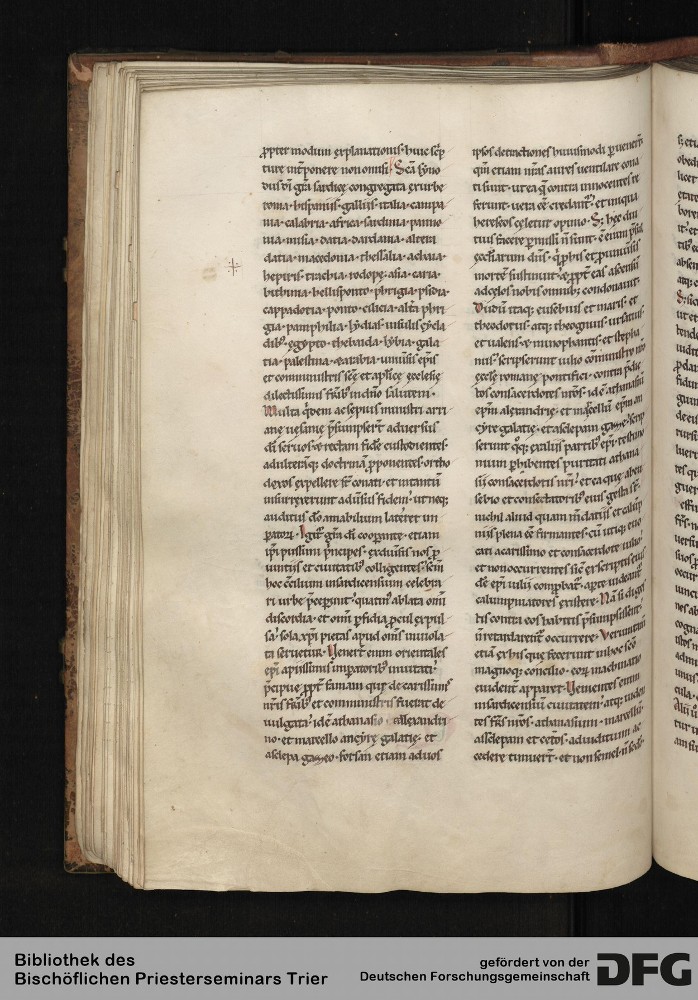 ꝓpter modum explanationis· huic scͥp
ture int̾ponere non omisi· Sc̄a syno
dus dī gr̄a sardice congregata ex urbe
roma· hispaniis· galliis· italia· campa
nia· calabria· africa· sardinia· panno
nia· misia· datia· dardania· altera
datia· macedonia· thessalia· achaia·
hepiris· trachia· rodope· asia· caria·
bithinia· hellisponto· phrigia· psidia·
cappadotia· ponto· cilicia· alt̾a phri
gia· pamphilia· lydia· insulis cycla
dib; egypto· thebaida· lybia· gala
tia· palestina· & arabia· uniuīsis ep̄is
et comministris sc̄e et ap̄lice ęcclesie
dilectissimis fr̄ib; in dn̄o salutem·
Multa qͥdem ac sepius ministri arri
ane uesanie p̄sumpser̄t aduersus
dī seruos· & rectam fidē custodientes·
adulterāq; doctrinā ꝓponentes· ortho
doxos expellere st̄ conati· et intantū
insurrexerunt aduersus fidem· ut neq;
auditus dn̄o amabilium lateret im
patorꝝ· Igit̾ gr̄a dī cooꝑante· etiam
ip̄i piissimi p̄ncipes· ex diuersis nos ꝓ
uintiis et ciuitatib; colligentes· sc̄m
hoc cēilium in sardicensium celebra
ri urbe p̄cepunt· quatin; ablata om̄i
discordia· et om̄i ꝑfidia ꝓcul expul
sa· sola xp̄i pietas apud om̄s inuiola
ta seruetur· Vener̄t enim orientales
ep̄i a piissimis imꝑatorib; inuitati·
p̄cipue ꝓpt̾ famam que de carissimis
nr̄is fr̄ib; et comministris fuerat de
uulgata· id ē athanasio· alexandri
no· et marcello ancyre galatie· et
asclepa gazeo· forsan etiam ad uos
ipsos detractiones huiusmodi ꝑuener̄t
qm̄ etiam nr̄as aures uentilare cona
ti sunt· ut ea q̄ contra innocentes re
ferunt· uera ēē credant̾· et iniqua
hereseos celetur opinio· S; hec diu
tius facere ꝑmissi n̄ sunt· ē enim p̄sul
ęccliarum dn̄s· qͥ ꝓ his et ꝓ uniuersis
mortē sustinuit· & ꝓpt̾ eas ascensū
ad celos nobis omnib; condonauit·
Dudū itaq; eusebius et maris· et
theodorus· atq; theognius· ursatius·
et ualens· & minophantis· et stepha
nus· scripserunt iulio cōministro nr̄o
ęcclē romanę pontifici· contra p̄dic
tos consacerdotes nr̄os· id ē athanasiū
ep̄m alexandrię· et marcellū ep̄m an
cyre galatie· et asclepam gazę· scrip
serunt qͦq; ex aliis partib; ep̄i· testimo
nium ꝑhibentes puritati athana
sii consacerdotis nr̄i· et ea que ab eu
sebio et consectatorib; eius gesta st̄·
nichil aliud quam mdatiis et calūp
niis plena ēē firmantes· cū utiq; euo
cati a carissimo et consacerdote iulio·
et non occurrentes sic ex scriptis eius
dē ep̄i iulii comꝓbat̾· aꝑte uideant̾
calumpniatores existere· Nā si dignis
dis contra eos habitis p̄sumpsissent·
n̄ retardarent̾ occurrere· Verumtam̄
etiā ex his que fecerunt in hoc sc̄o
magnoq; concilio· eorꝝ machinatio
euident̾ apparet· Venientes enim
in sardicensiū ciuitatem· atq; uiden
tes fr̄s nr̄os· athanasium· marcellū·
asclepam et cet̾os· ad iuditium ac
cedere timuer̄t· et non semel n̄ sed
Bibliothek des
Bischöflichen Priesterseminars Trier
gefördert von der
Deutschen Forschungsgemeinschaft
DFG